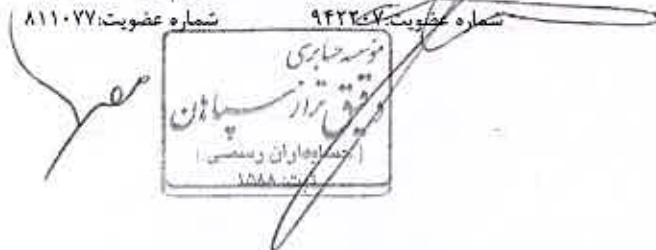 شماره عضویت:۹۴۲۲۰۷ شماره عضویت:۸۱۱۰۷۷
موسسه حسابری
دقیق تراز سپاهان
(حسابداران رسمی)
ثبت: ۱۵۸۸